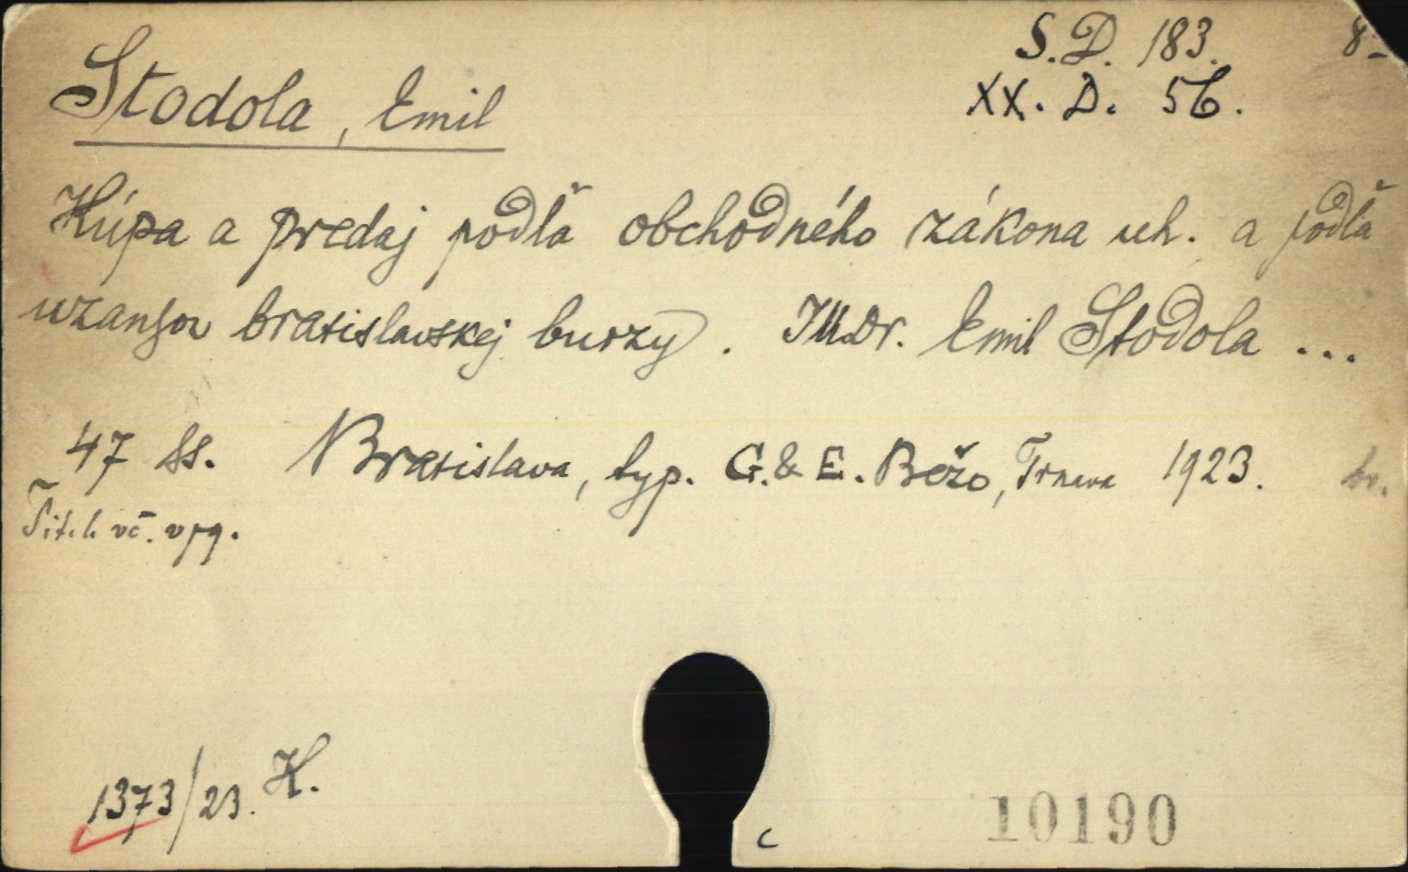 S. D. 183. 8=
XX. D. 56.
Stodola, Emil
Kúpa a predaj podľa obchodného zákona uh. a podľa
uzansov bratislavskej burzy. JUDr. Emil Stodola ...
47 ss. Bratislava, typ. G. & E. Bežo, Trnava 1923. br.
Tit. l. vč. v pg.
1373/23. K.
C
10190